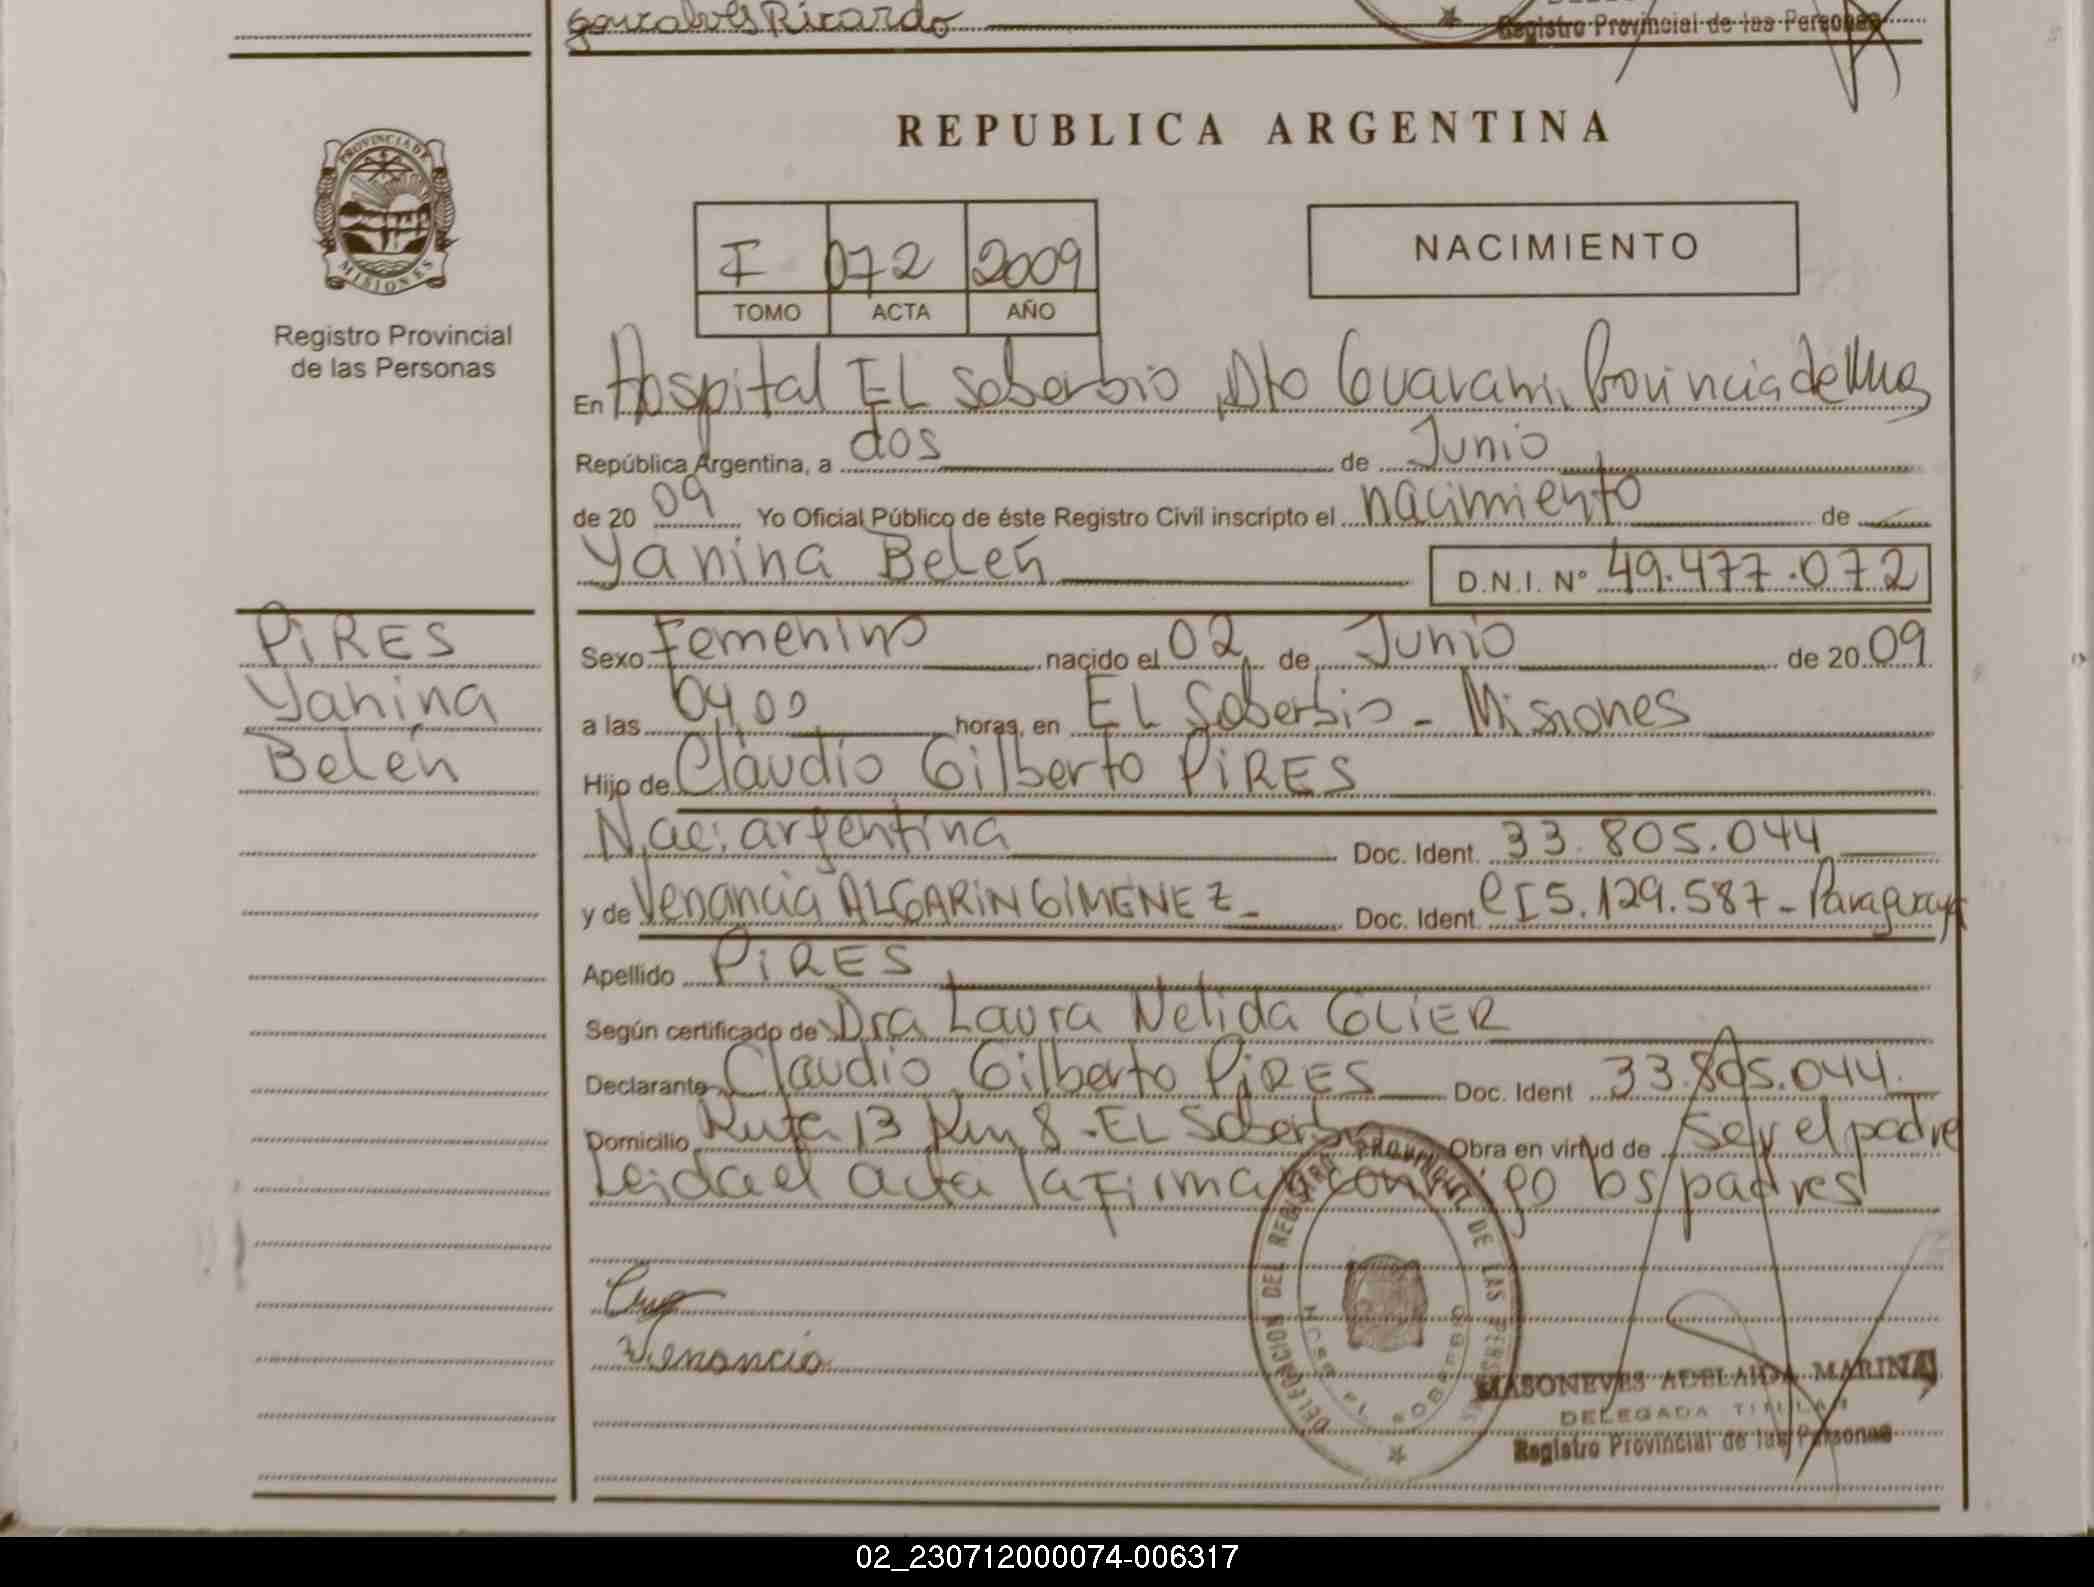 Goncalves Ricardo
Registro Provincial de las Personas
PROVINCIA DE
MISIONES
Registro Provincial
de las Personas
REPUBLICA ARGENTINA
I 072 2009
TOMO ACTA AÑO
NACIMIENTO
En Hospital EL Soberbio, Dto Guarani, Provincia de Mnes
República Argentina, a dos de Junio
de 2009 Yo Oficial Público de éste Registro Civil inscripto el nacimiento de
Yanina Belén
D.N.I. N° 49.477.072
PIRES
Yanina
Belén
Sexo Femenino nacido el 02 de Junio de 2009
a las 04,00 horas, en EL Soberbio - Misiones
Hijo de Claudio Gilberto PIRES
Nac: argentina Doc. Ident. 33.805.044
y de Venancia ALGARIN GIMENEZ - Doc. Ident. CI 5.129.587 - Paraguaya
Apellido PIRES
Según certificado de Dra Laura Nelida GLIER
Declarante Claudio Gilberto PIRES Doc. Ident 33.805.044.
Domicilio Ruta 13 Km 8 - EL Soberbio Obra en virtud de Ser el padre
Leida el acta la firman conmigo los padres
DELEGACION DEL REGISTRO PROVINCIAL DE LAS PERSONAS
EL SOBERBIO
Venancia
MASONEVES ADELAIDA MARINA
DELEGADA TITULAR
Registro Provincial de las Personas
02_230712000074-006317